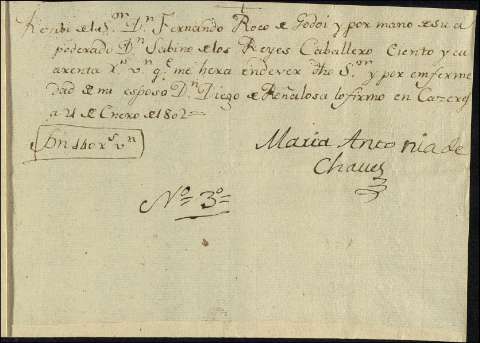 Reciui de el S.ᵒʳ D.ⁿ Fernando Roco de Godoi y por mano de su a
poderado D.ⁿ Sabino de los Reyes Caballero Ciento y cu
arenta r.ˢ v.ⁿ q.ᵉ me hera endever dho S.ᵒʳ y por emferme
dad de mi esposo D.ⁿ Diego de Peñalosa lo firmo en Cazeres
a 21 de Enero de 1802
Son 140 r.ˢ v.ⁿ
Maria Antonia de
Chaues
Nº 3º